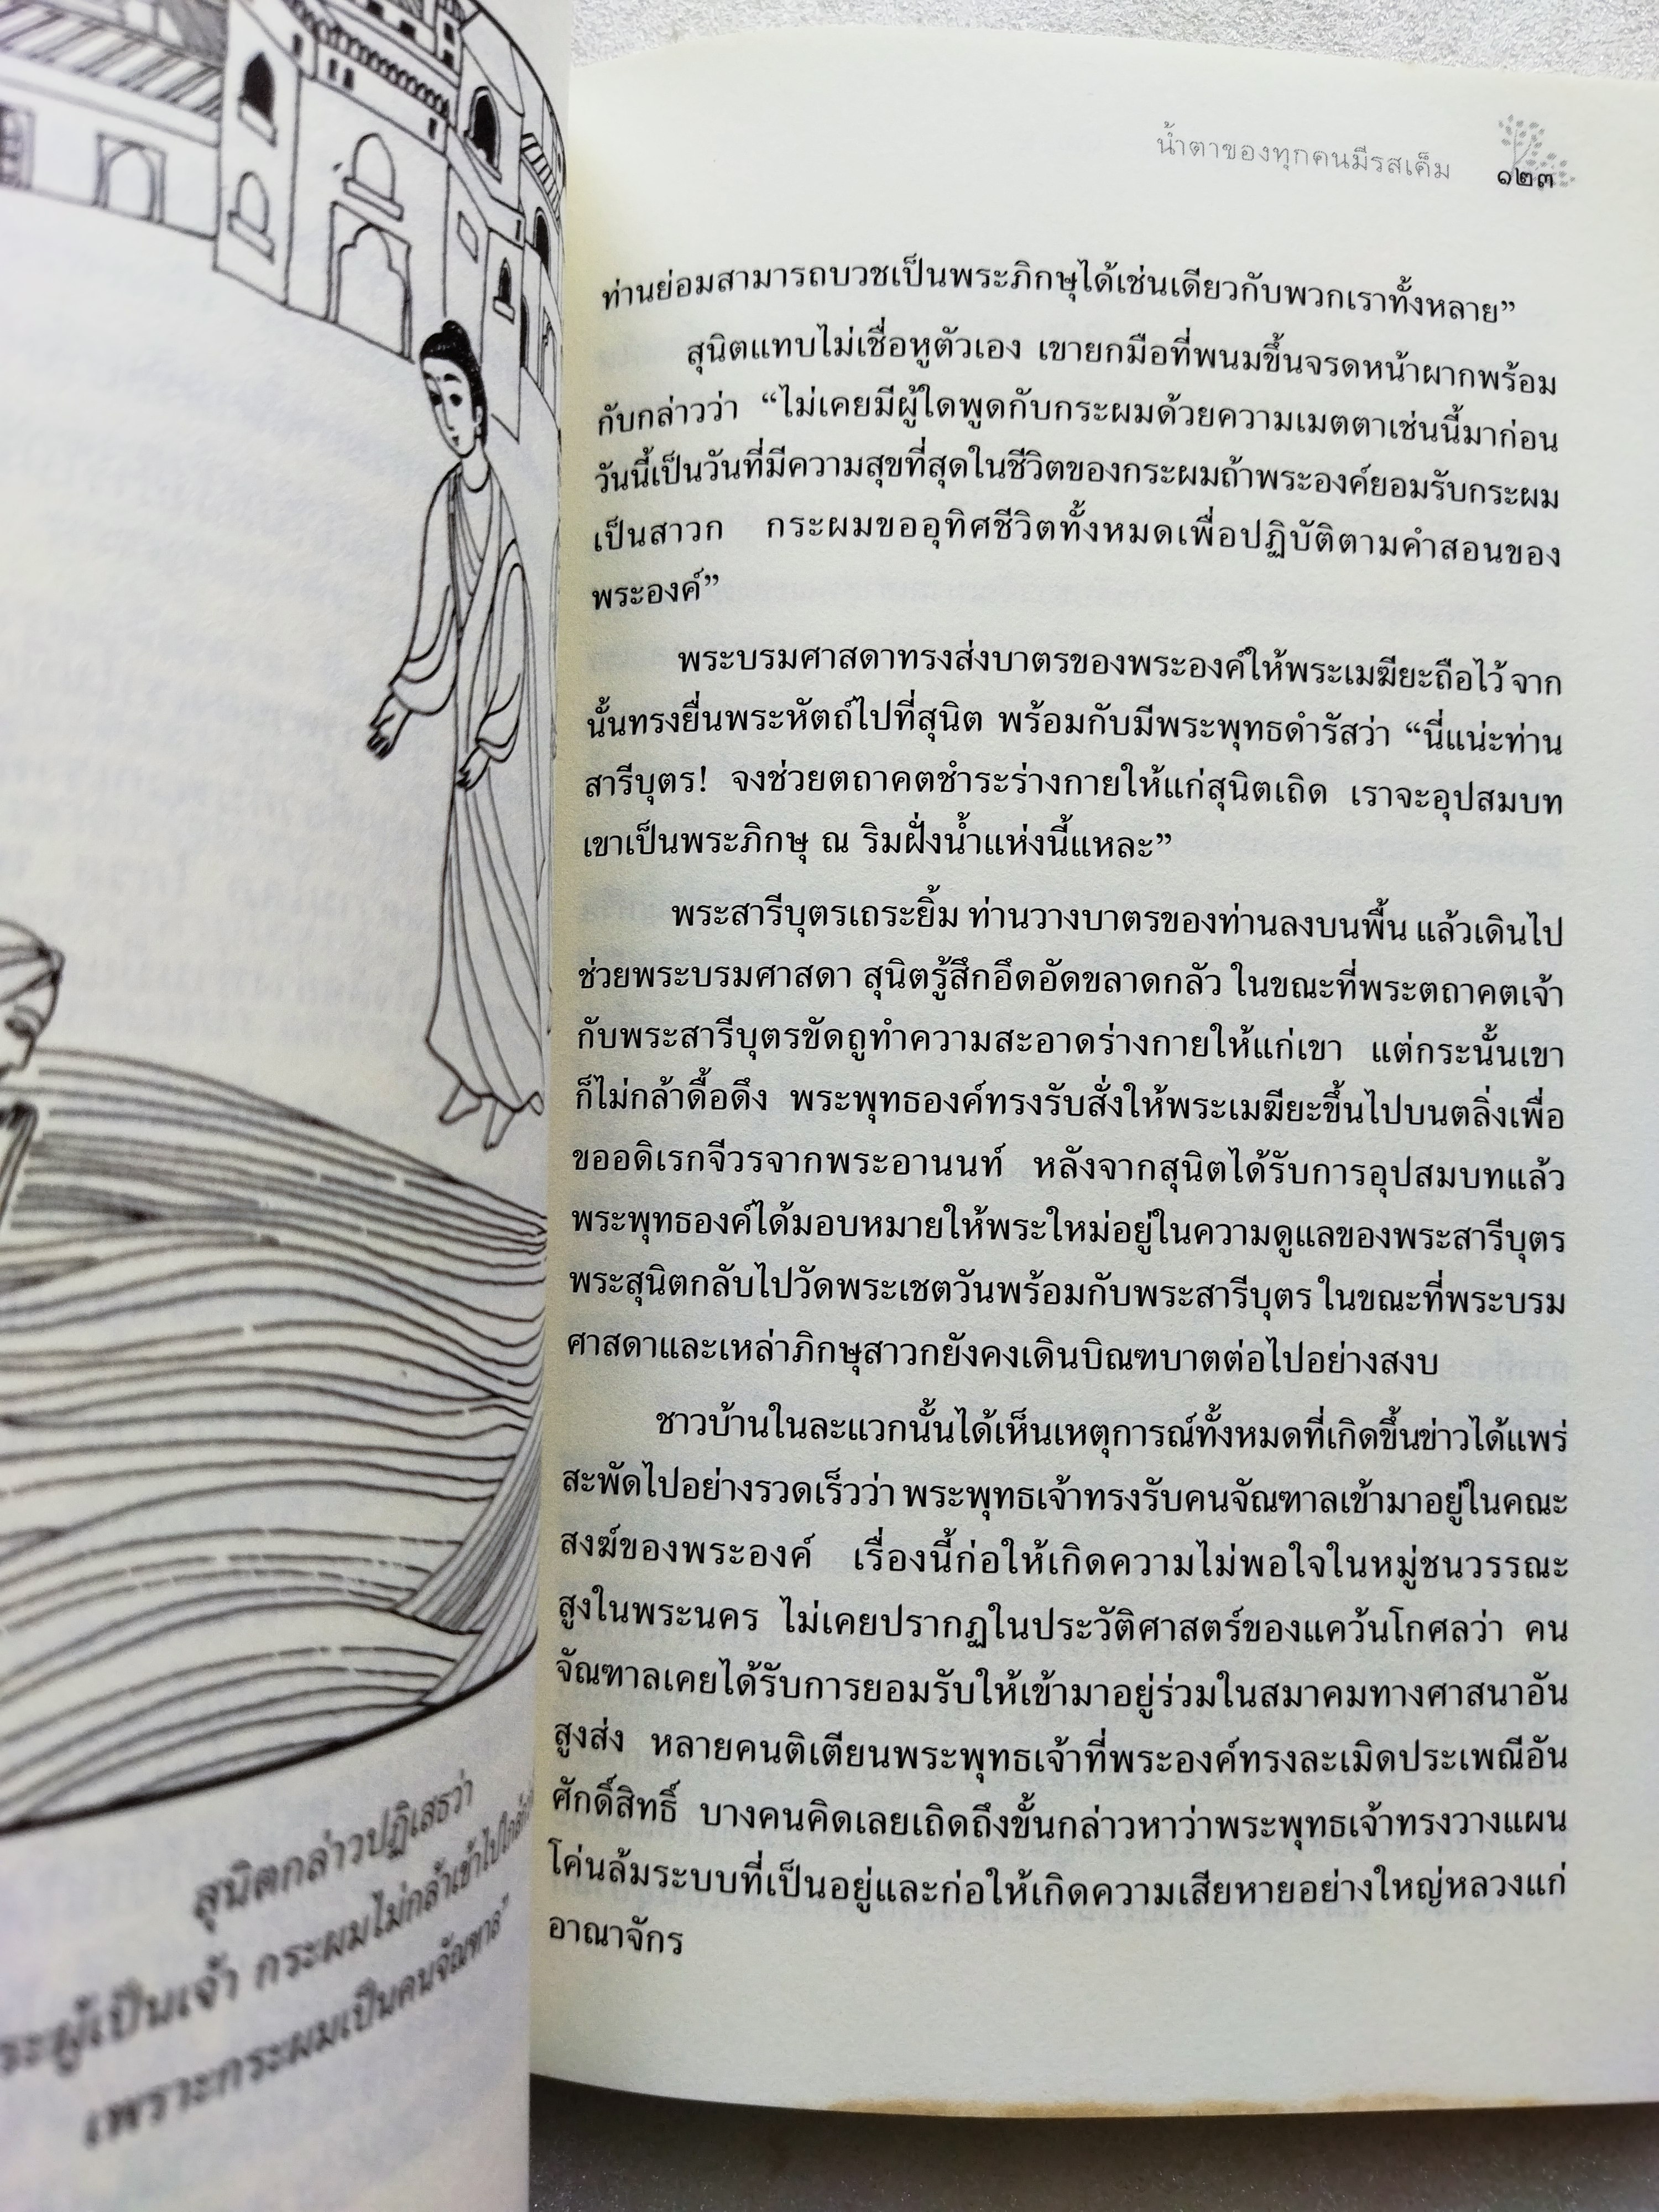 สุนิตกล่าวปฏิเสธว่า
ระผู้เป็นเจ้า กระผมไม่กล้าเข้าไปใกล้
เพราะกระผมเป็นคนจัณฑาล”
น้ำตาของทุกคนมีรสเค็ม
๑๒๓
ท่านย่อมสามารถบวชเป็นพระภิกษุได้เช่นเดียวกับพวกเราทั้งหลาย”
สุนิตแทบไม่เชื่อหูตัวเอง เขายกมือที่พนมขึ้นจรดหน้าผากพร้อม
กับกล่าวว่า “ไม่เคยมีผู้ใดพูดกับกระผมด้วยความเมตตาเช่นนี้มาก่อน
วันนี้เป็นวันที่มีความสุขที่สุดในชีวิตของกระผมถ้าพระองค์ยอมรับกระผม
เป็นสาวก กระผมขออุทิศชีวิตทั้งหมดเพื่อปฏิบัติตามคำสอนของ
พระองค์”
พระบรมศาสดาทรงส่งบาตรของพระองค์ให้พระเมฆียะถือไว้ จาก
นั้นทรงยื่นพระหัตถ์ไปที่สุนิต พร้อมกับมีพระพุทธดำรัสว่า “นี่แน่ะท่าน
สารีบุตร! จงช่วยตถาคตชำระร่างกายให้แก่สุนิตเถิด เราจะอุปสมบท
เขาเป็นพระภิกษุ ณ ริมฝั่งน้ำแห่งนี้แหละ”
พระสารีบุตรเถระยิ้ม ท่านวางบาตรของท่านลงบนพื้น แล้วเดินไป
ช่วยพระบรมศาสดา สุนิตรู้สึกอึดอัดขลาดกลัว ในขณะที่พระตถาคตเจ้า
กับพระสารีบุตรขัดถูทำความสะอาดร่างกายให้แก่เขา แต่กระนั้นเขา
ก็ไม่กล้าดื้อดึง พระพุทธองค์ทรงรับสั่งให้พระเมฆียะขึ้นไปบนตลิ่งเพื่อ
ขออดิเรกจีวรจากพระอานนท์ หลังจากสุนิตได้รับการอุปสมบทแล้ว
พระพุทธองค์ได้มอบหมายให้พระใหม่อยู่ในความดูแลของพระสารีบุตร
พระสุนิตกลับไปวัดพระเชตวันพร้อมกับพระสารีบุตร ในขณะที่พระบรม
ศาสดาและเหล่าภิกษุสาวกยังคงเดินบิณฑบาตต่อไปอย่างสงบ
ชาวบ้านในละแวกนั้นได้เห็นเหตุการณ์ทั้งหมดที่เกิดขึ้นข่าวได้แพร่
สะพัดไปอย่างรวดเร็วว่า พระพุทธเจ้าทรงรับคนจัณฑาลเข้ามาอยู่ในคณะ
สงฆ์ของพระองค์ เรื่องนี้ก่อให้เกิดความไม่พอใจในหมู่ชนวรรณะ
สูงในพระนคร ไม่เคยปรากฏในประวัติศาสตร์ของแคว้นโกศลว่า คน
จัณฑาลเคยได้รับการยอมรับให้เข้ามาอยู่ร่วมในสมาคมทางศาสนาอัน
สูงส่ง หลายคนติเตียนพระพุทธเจ้าที่พระองค์ทรงละเมิดประเพณีอัน
ศักดิ์สิทธิ์ บางคนคิดเลยเถิดถึงขั้นกล่าวหาว่าพระพุทธเจ้าทรงวางแผน
โค่นล้มระบบที่เป็นอยู่และก่อให้เกิดความเสียหายอย่างใหญ่หลวงแก่
อาณาจักร